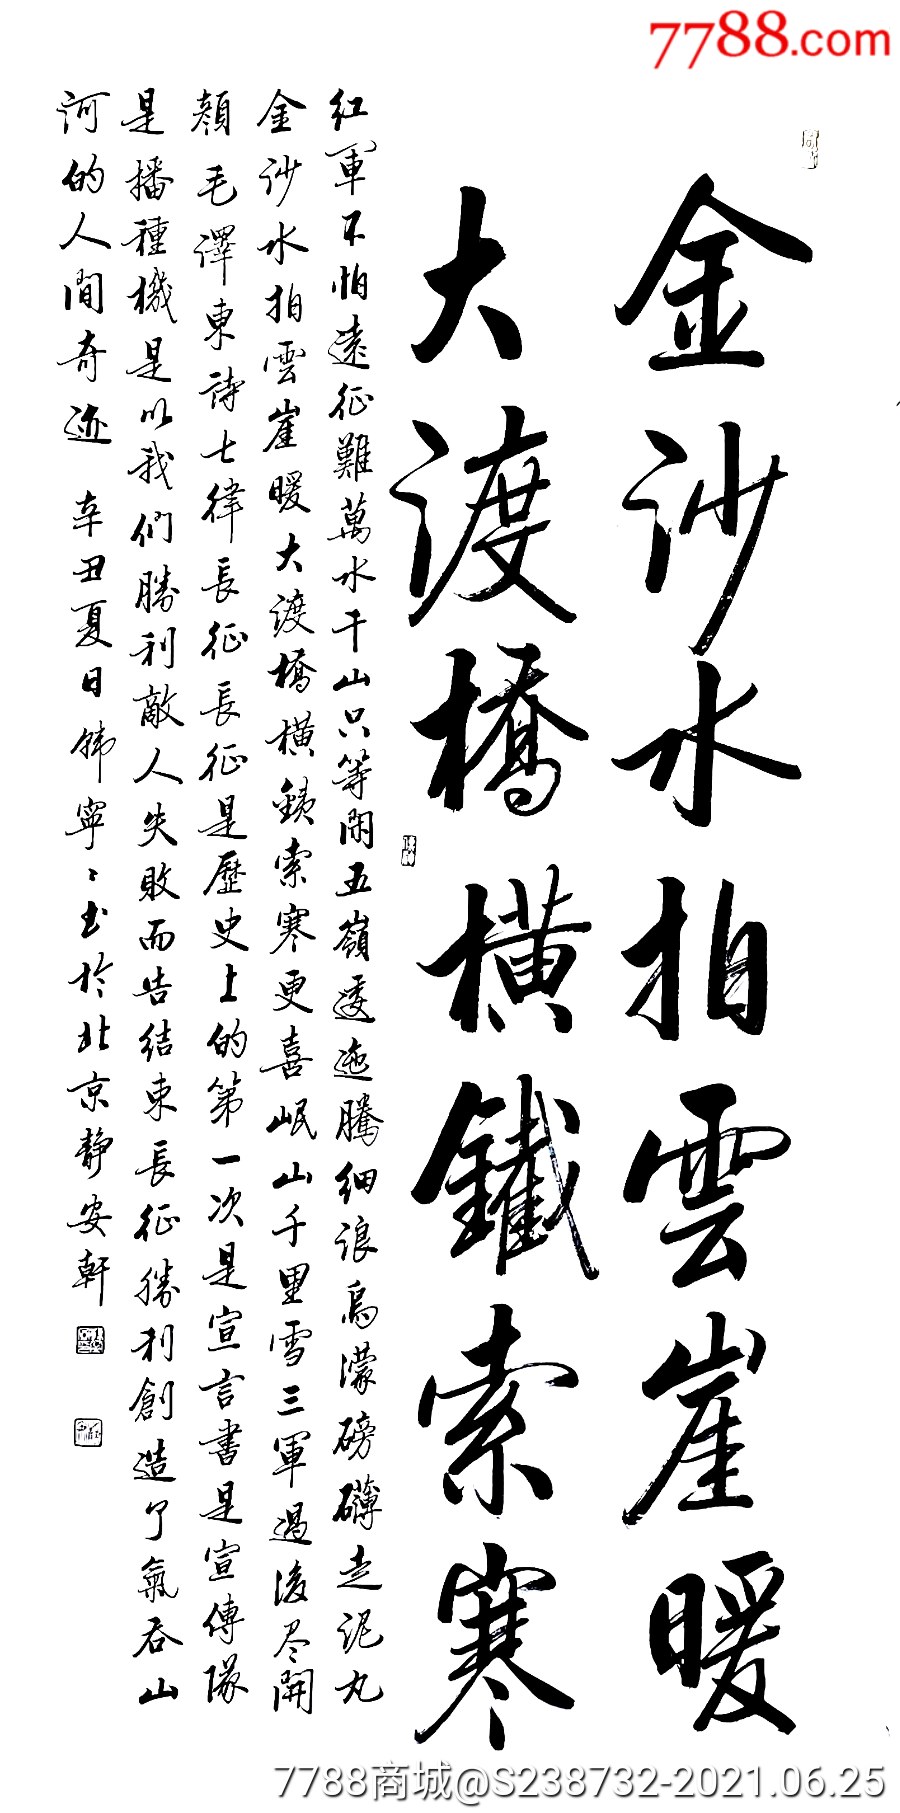 7788.com
金沙水拍雲崖暖
大渡橋橫鐵索寒
紅軍不怕遠征難萬水千山只等閑五嶺逶迤騰細浪烏濛磅礴走泥丸
金沙水拍雲崖暖大渡橋橫鐵索寒更喜岷山千里雪三軍過後盡開
顏毛澤東詩七律長征長征是歷史上的第一次是宣言書是宣傳隊
是播種機是以我們勝利敵人失敗而告結束長征勝利創造了氣吞山
河的人間奇迹 辛丑夏日 寧〻書於北京靜安軒
7788商城@S238732-2021.06.25